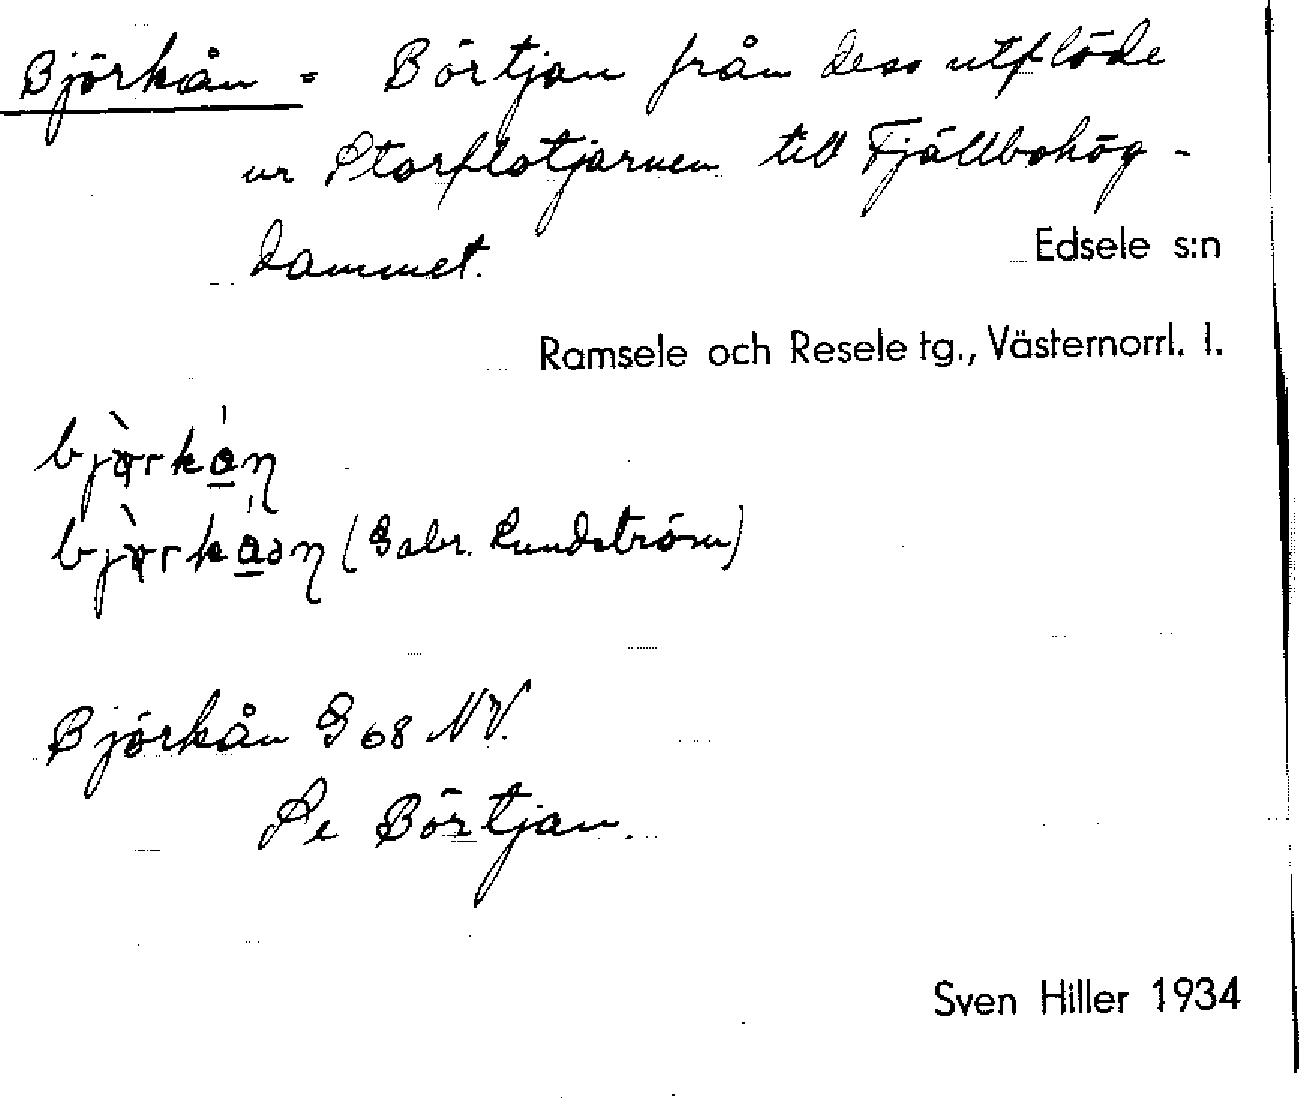 Björkån = Börtjan från dess utflöde
ur Storflotjärnen till Fjällbohög-
dammet.
Edsele s:n
Ramsele och Resele tg., Västernorrl. l.
(Gabr. Lundström)
Björkån G 68 NV.
Se Börtjan.
Sven Hiller 1934